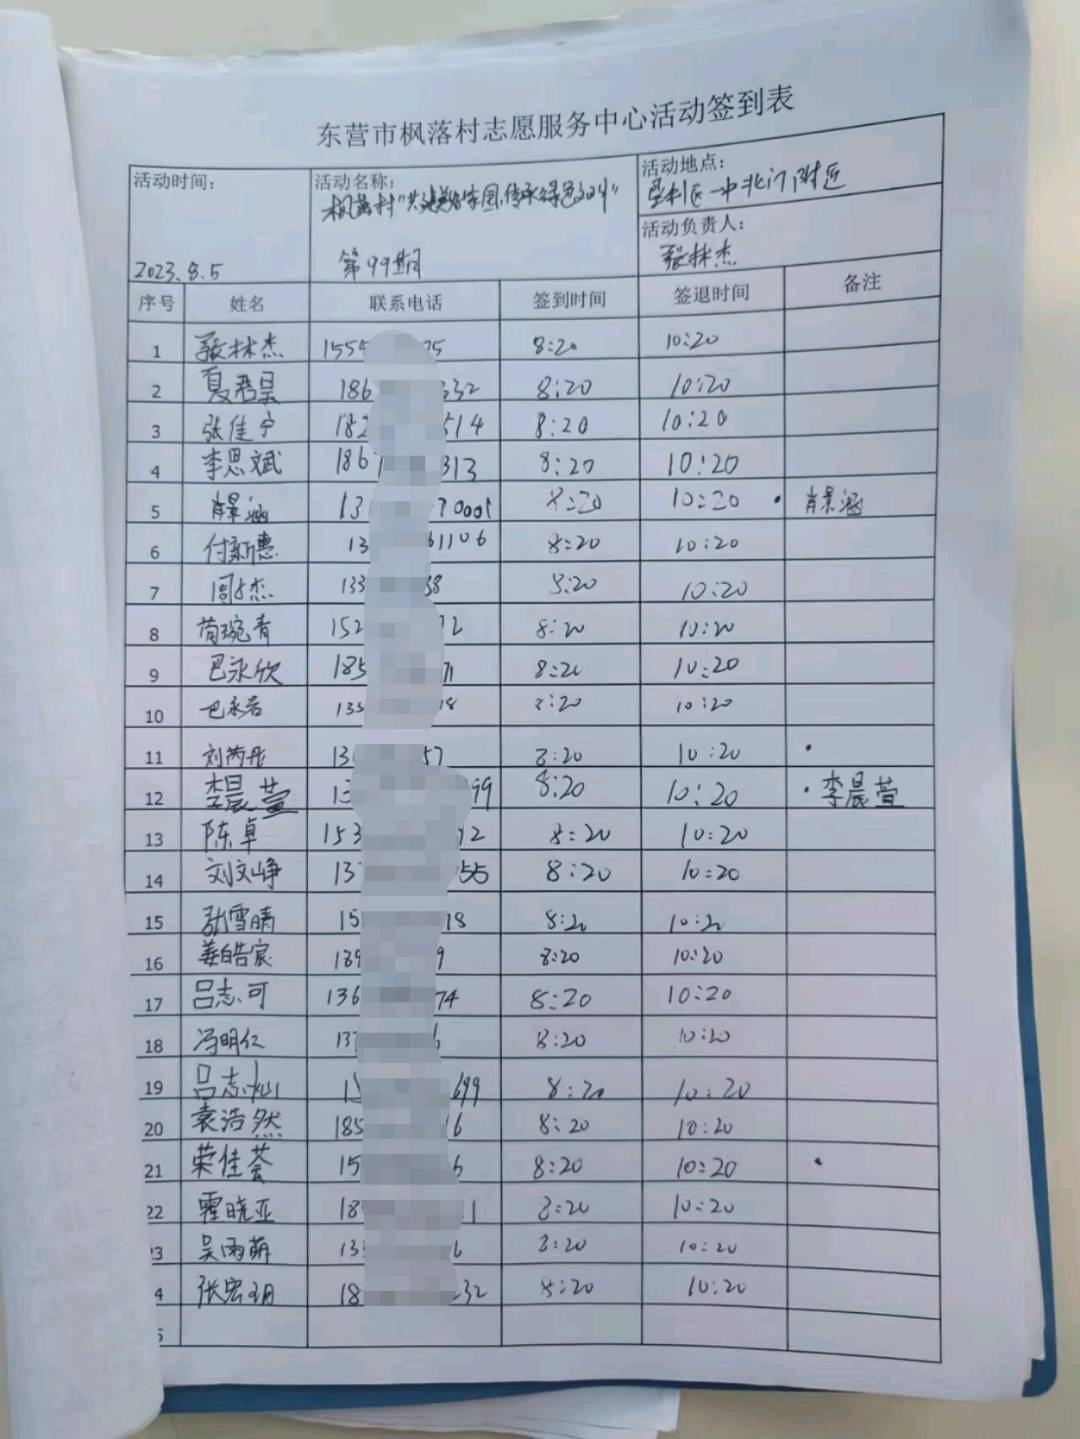 东营市枫落村志愿服务中心活动签到表
活动时间：
2023.8.5
活动名称：
枫落村"共建美好家园,传承绿色文明"
第99期
活动地点：
垦利区一中北门附近
活动负责人：
张林杰
序号 姓名 联系电话 签到时间 签退时间 备注
1 张林杰 1554 75 8:20 10:20
2 夏君昊 186 332 8:20 10:20
3 张佳宁 182 514 8:20 10:20
4 李思斌 1867 313 8:20 10:20
5 肖景涵 13 70001 8:20 10:20 · 肖景涵
6 付新惠 13 61106 8:20 10:20
7 周杰 133 58 8:20 10:20
8 苟琬青 152 72 8:20 10:20
9 巴永欣 185 71 8:20 10:20
10 巴永若 135 18 8:20 10:20
11 刘芮彤 130 57 8:20 10:20 ·
12 李晨萱 13 99 8:20 10:20 · 李晨萱
13 陈卓 153 92 8:20 10:20
14 刘文峥 137 955 8:20 10:20
15 张雪晴 15 18 8:20 10:20
16 姜皓宸 139 9 8:20 10:20
17 吕志可 136 74 8:20 10:20
18 冯明仁 137 6 8:20 10:20
19 吕志灿 15 699 8:20 10:20
20 袁浩然 185 16 8:20 10:20
21 荣佳荟 15 6 8:20 10:20 ·
22 霍晓亚 18 11 8:20 10:20
3 吴雨萌 133 6 8:20 10:20
4 张宏玥 18 232 8:20 10:20
5